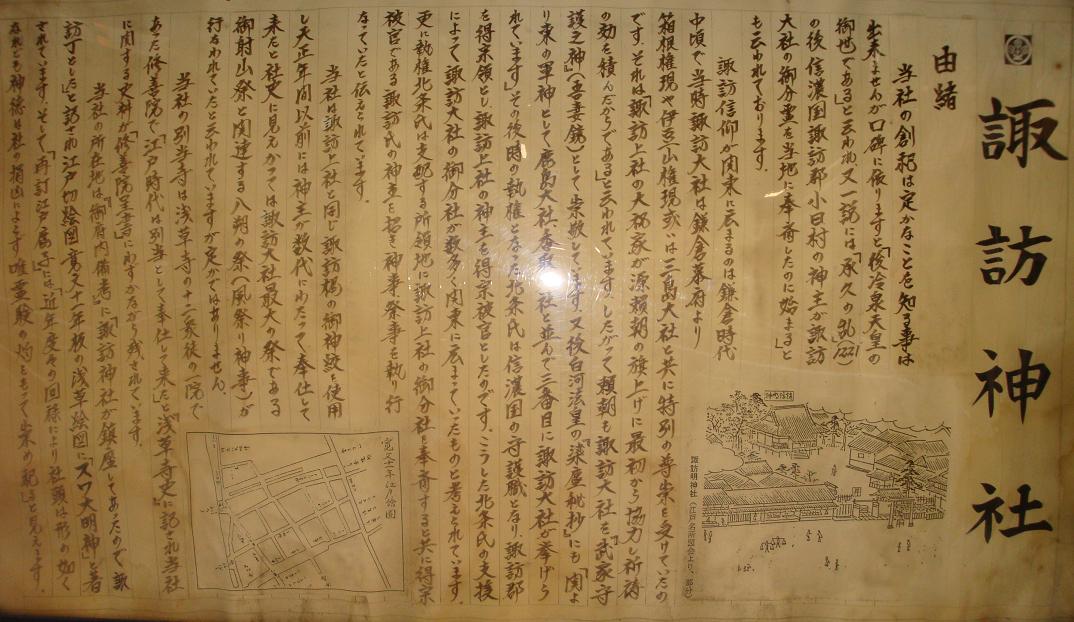 諏訪神社
由緒
当社の創祀は定かなことを知る事は
出来ませんが口碑に依りますと「後冷泉天皇の
御世である」と云われ、又一説には「承久の乱(1221)
の後信濃国諏訪郡小日村の神主が諏訪
大社の御分霊を当地に奉斎したのに始まる」と
も云われております。
諏訪信仰が関東に広まるのは鎌倉時代
中頃で当時諏訪大社は鎌倉幕府より
箱根権現や伊豆山権現或いは三島大社と共に特別の尊崇を受けていたの
です。それは「諏訪上社の大祝家が源頼朝の旗上げに最初から協力し祈祷
の効を積んだからである」と云われています。したがって頼朝も諏訪大社を「武家守
護之神」(吾妻鏡)として崇敬しています。又後白河法皇の「梁塵秘抄」にも「関よ
り東の軍神として鹿島大社、香取大社と並んで三番目に諏訪大社が挙げら
れています」その後、時の執権となった北条氏は信濃国の守護職となり、諏訪郡
を得宗領とし、諏訪上社の神主を得宗被官としたのです。こうした北条氏の支援
によって諏訪大社の御分社が数多く関東に広まっていったものと考えられています。
更に執権北条氏は支配する所領地に諏訪上社の御分社を奉斎すると共に得宗
被官である諏訪氏の神主を招き神事、祭事を執り行
なっていたと伝えられて います。
当社は諏訪上社と同じ諏訪梶の御神紋を使用
し天正年間以前には神主が数代にわたって、奉仕して
来たと社史に見えかつては諏訪大社最大の祭である
御射山祭と関連する八朔の祭(風祭り神事)が
行なわれていたと云われていますが定かではありません。
当社の別当寺は浅草寺の十二衆徒の一院で
あった修善院で「江戸時代は別当として奉仕して来た」と浅草寺史に記され当社
に関する史料が「修善院書上書」にわずかながら残されています。
当社の所在地は「御府内備考」に「諏訪神社が鎮座してあったので諏
訪丁とした」と記され江戸切絵図寛文十一年板の浅草絵図に「スワ大明神」と著
されています。そして「再訂江戸総鹿子」には「近年度々の回禄により社頭は形の如く
なれども神徳は社の
唯霊験の灼
諏訪明神社(江戸名所図会より、部分)
寛文十一年江戸絵図